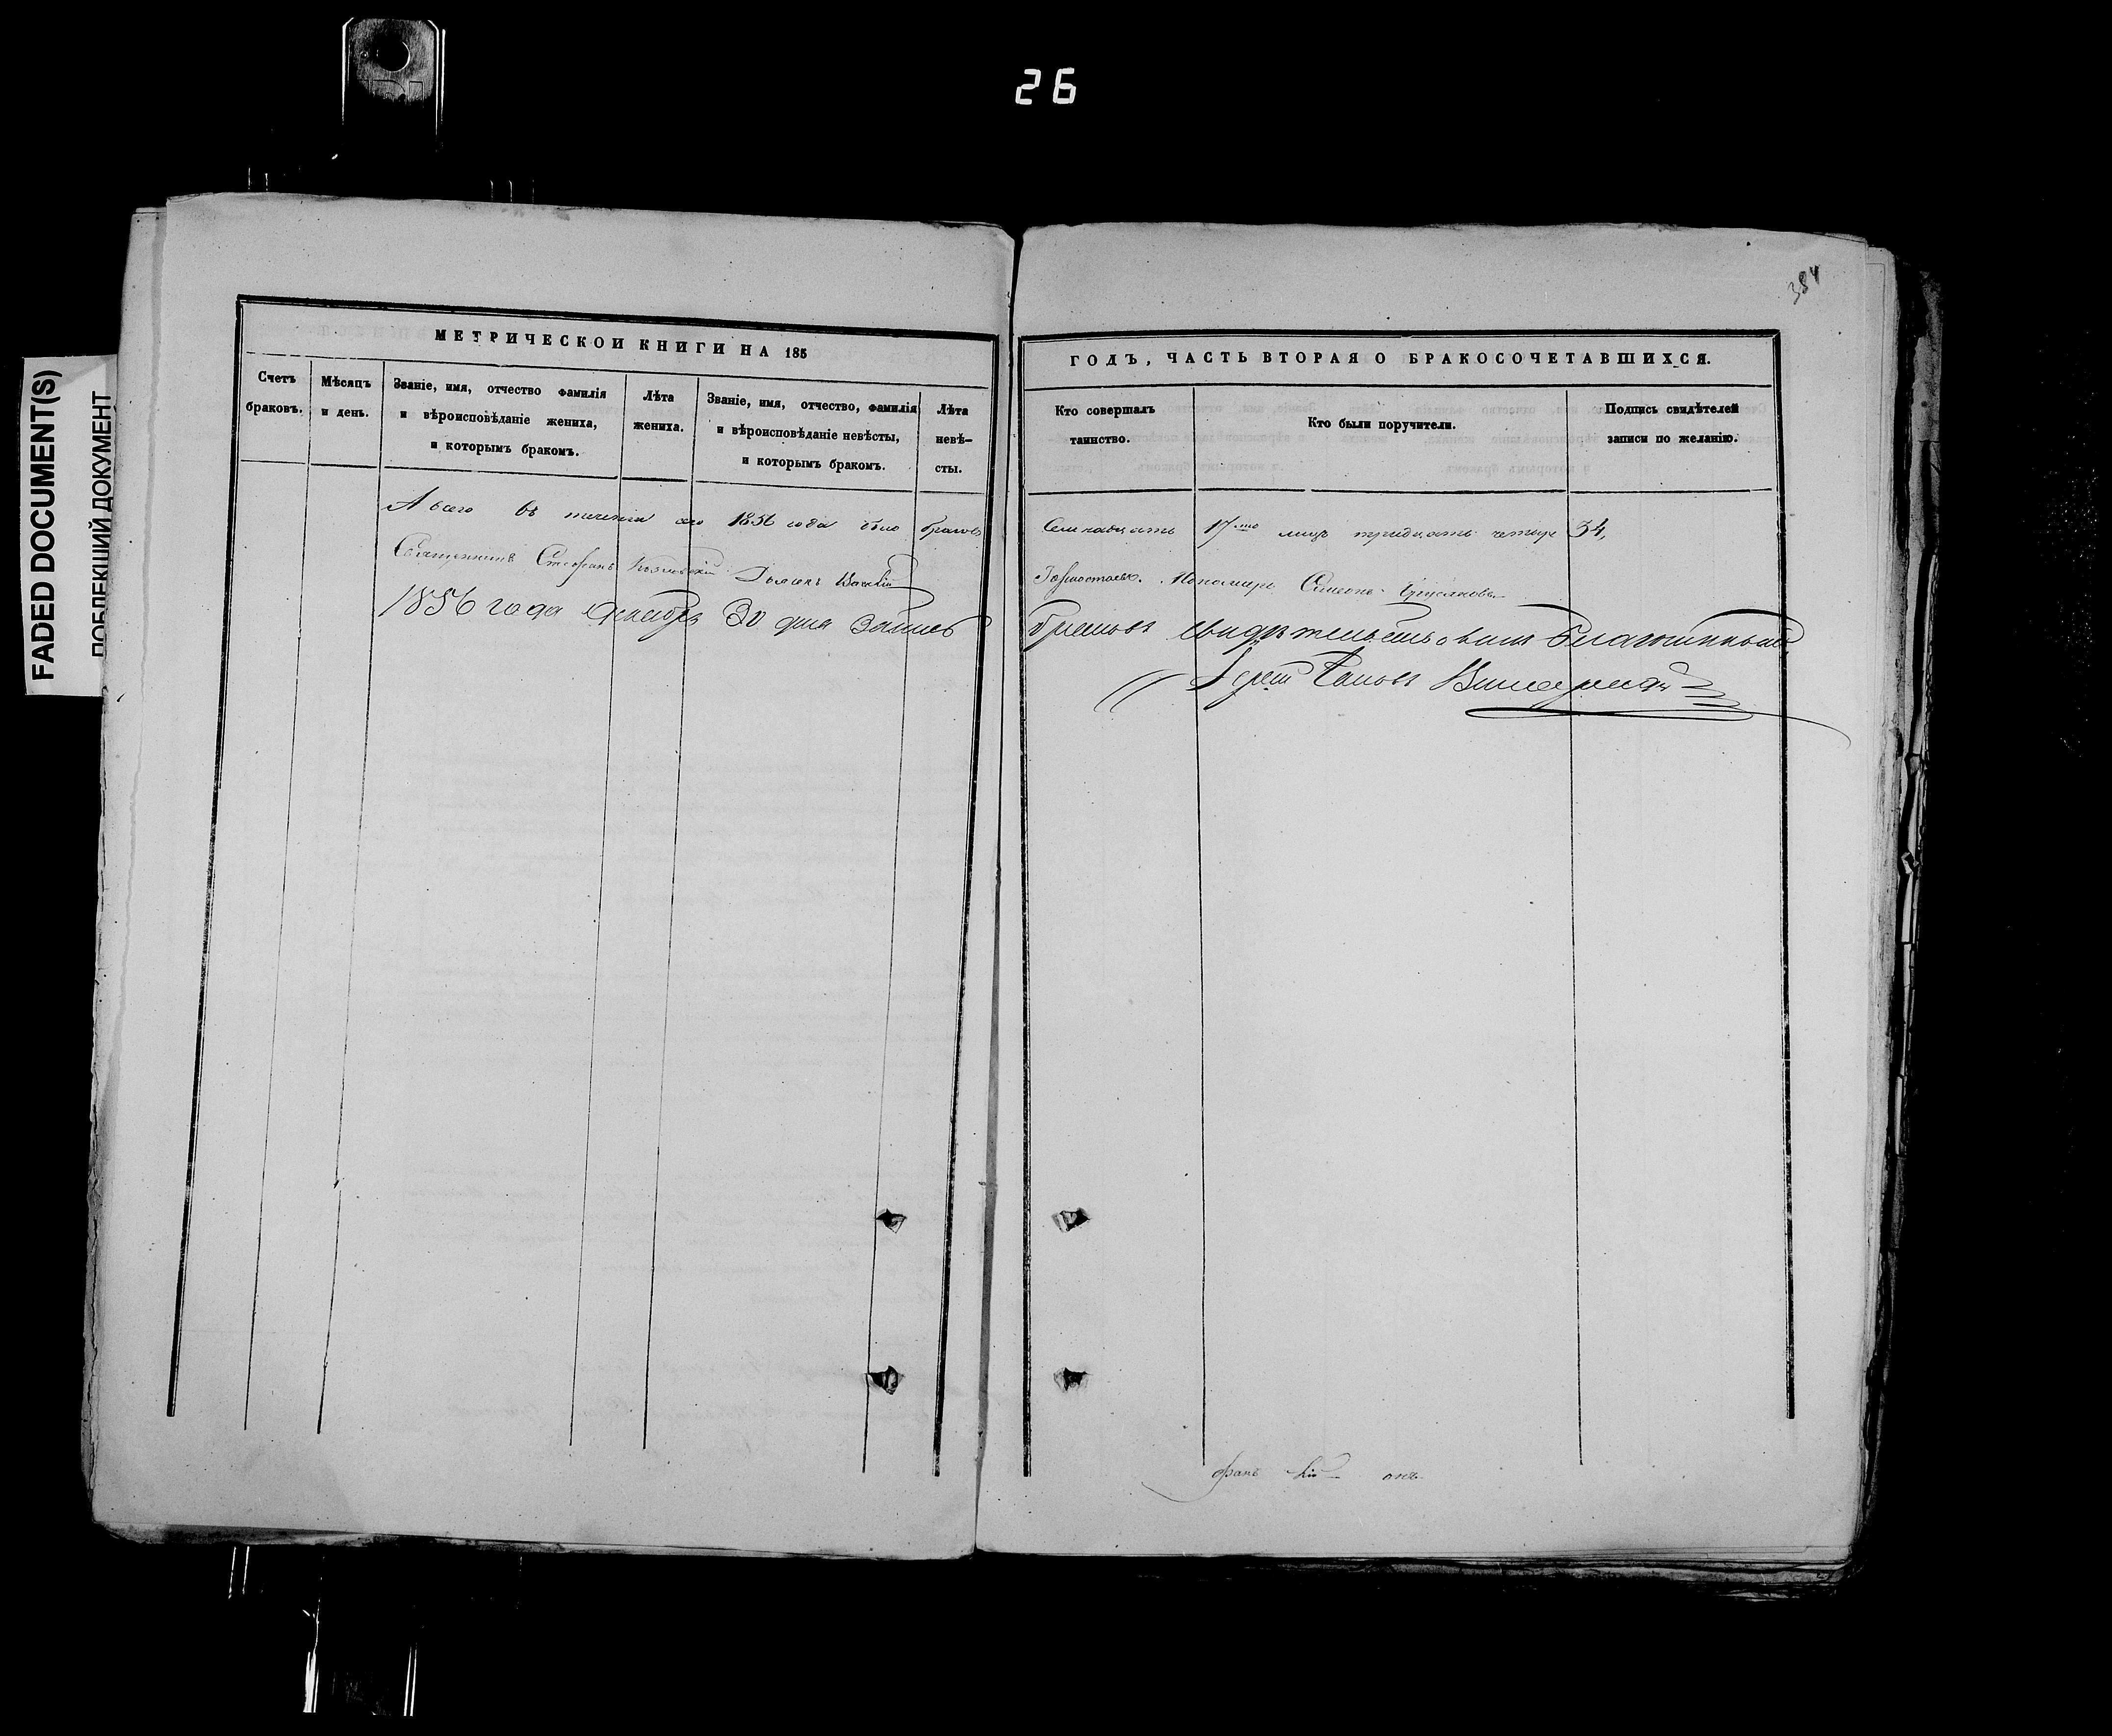 26
FADED DOCUMENT(S)
ПОБЛЕКШИЙ ДОКУМЕНТ
384
МЕТРИЧЕСКОИ КНИГИ НА 185
Счетъ браковъ.
Мѣсяцъ и день.
Званіе, имя, отчество фамилія и вѣроисповѣданіе жениха, и которымъ бракомъ.
Лѣта жениха.
Званіе, имя, отчество, фамилія и вѣроисповѣданіе невѣсты, и которымъ бракомъ.
Лѣта невѣ-сты.
А всего въ теченіи сего 1856 года было браковъ
Священникъ Стефанъ
1856 года Декабря 30 дня Запись
ГОДЪ, ЧАСТЬ ВТОРАЯ О БРАКОСОЧЕТАВШИХСЯ.
Кто совершалъ таинство.
Кто были поручители.
Подпись свидѣтелей записи по желанію.
Семнадцать 17 лицъ тридцать четыре 34,
Пономарь Симеонъ
браковъ свидѣтельствовалъ Благочинный
фанъ кій онъ